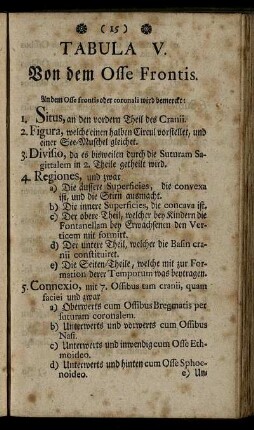 ( 15 )
TABULA V.
Von dem Osse Frontis.
An dem Osse frontis oder coronali wird bemercket:
1. Situs, an den vordern Theil des Cranii.
2. Figura, welche einen halben Circul vorstellet, und
einer See-Muschel gleichet.
3. Divisio, da es bisweilen durch die Suturam Sa-
gittalem in 2. Theile getheilt wird.
4. Regiones, und zwar
a) Die äussere Superficies, die convexa
ist, und die Stirn ausmacht.
b) Die innere Superficies, die concava ist.
c) Der obere Theil, welcher bey Kindern die
Fontanellam bey Erwachsenen den Ver-
ticem mit formirt.
d) Der untere Theil, welcher die Basin cra-
nii constituiret.
e) Die Seiten-Theile, welche mit zur For-
mation derer Temporum was beytragen.
5. Connexio, mit 7. Ossibus tam cranii, quam
faciei und zwar
a) Oberwerts cum Ossibus Bregmatis per
suturam coronalem.
b) Unterwerts und vorwerts cum Ossibus
Nasi.
c) Unterwerts und inwendig cum Osse Eth-
moideo.
d) Unterwerts und hinten cum Osse Sphoe-
noideo.
e) Un-